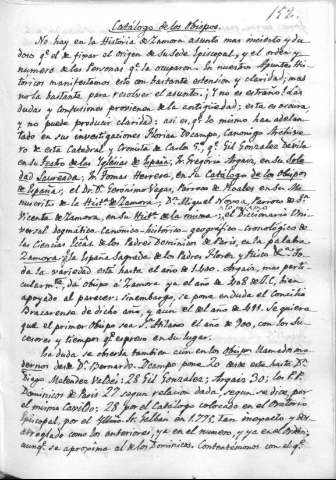 152.
Catálogo de los Obispos.
No hay en la Historia de Zamora asunto mas incierto y du
doso q.e el de fixar el origen de su Sede Episcopal, y el orden y
numero de las Personas q.e la ocuparon. En nuestros Apuntes His
tóricos manifestamos esto con bastante estension y claridad; mas
no lo bastante para resolver el asunto. Y no es extraño: las
dudas y confusiones provienen de la antigüedad: esta es oscura
y no puede producir claridad: asi es q.e lo mismo han adelan
tado en sus investigaciones Florian Ocampo, Canonigo Archive
ro de esta Catedral y Cronista de Carlo 5.o, q.e Gil Gonzalez Dávila
en su Teatro de las Iglesias de España; Fr. Gregorio Argaiz, en su Sole
dad Laureada; Fr. Tomas Herrera, en su Catálogo de los Obispos
de España; el Dr. D.n Gerónimo Vegas, Parroco de Moales en su Ma
nuscrito de la Hist.a de Zamora; D.n Miguel Novoa, Parroco de S.n
Vicente de Zamora, en su Hist.a de la misma; el Diccionario Uni
versal dogmático-Canónico-histórico-geográfico-cronológico de
las Ciencias Ecl.as de los Padres Dominicos de Paris, en la palabra
Zamora; la España Sagrada de los Padres Florez y Risco &.a To
da la variedad está hasta el año de 1.400. Argaiz, mas parti
cularm.te dá Obispo á Zamora ya el año de 408 de J.C, bien
apoyado al parecer: sin embargo, se pone en duda el Concilio
Bracarense de dicho año, y aun el del año de 411. Se quiere
que el primer Obispo sea S.n Atilano el año de 900, con los Su
cesores y tiempos q.e expreso en su lugar.
La duda se observa tambien aún en los Obispos llamados mo
dernos desde D.n Bernardo. Ocampo pone 20 desde este hasta D.n
Diego Melendez Valdés; 28 Gil Gonzalez; Argaiz 30; los P.P.
Dominicos de Paris 27 segun relacion dada, segun se dice, por
el mismo Cavildo; 28 por el Catálogo colocado en el Oratorio
Episcopal, por el Yllmo. Sr. Galban en 1.776, tan inexacto y des
arreglado como los anteriores, ya en el numero, y ya en el Orden;
aunq.e se aproxima al de los Dominicos. Contentémonos con el q.e